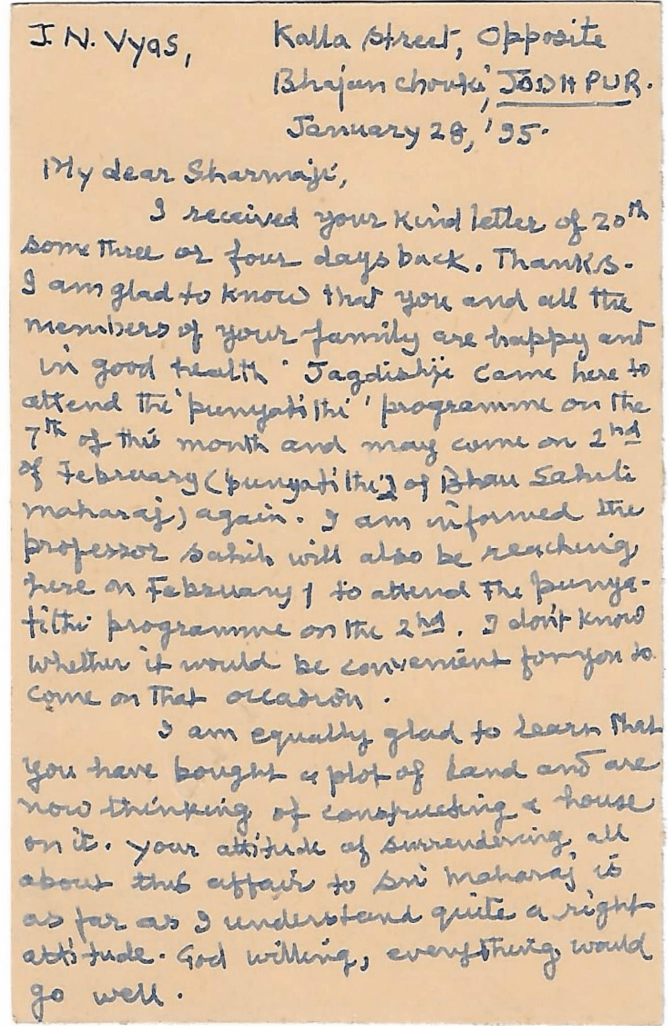 J. N. Vyas, Kalla Street, Opposite
Bhajan Chouki, JODHPUR.
January 28, '95.
My dear Sharmaji,
I received your kind letter of 20th
some three or four days back. Thanks.
I am glad to know that you and all the
members of your family are happy and
in good health. Jagdishji came here to
attend the 'punyatithi' programme on the
7th of this month and may come on 2nd
of February (punyatithi) of Bhau Sahib
maharaj) again. I am informed the
professor sahib will also be reaching
here on February 1 to attend the punya-
tithi programme on the 2nd. I don't know
whether it would be convenient for you to
come on that occasion.
I am equally glad to learn that
you have bought a plot of land and are
now thinking of constructing a house
on it. Your attitude of surrendering all
about this affair to Sri Maharaj is
as far as I understand quite a right
attitude. God willing, everything would
go well.